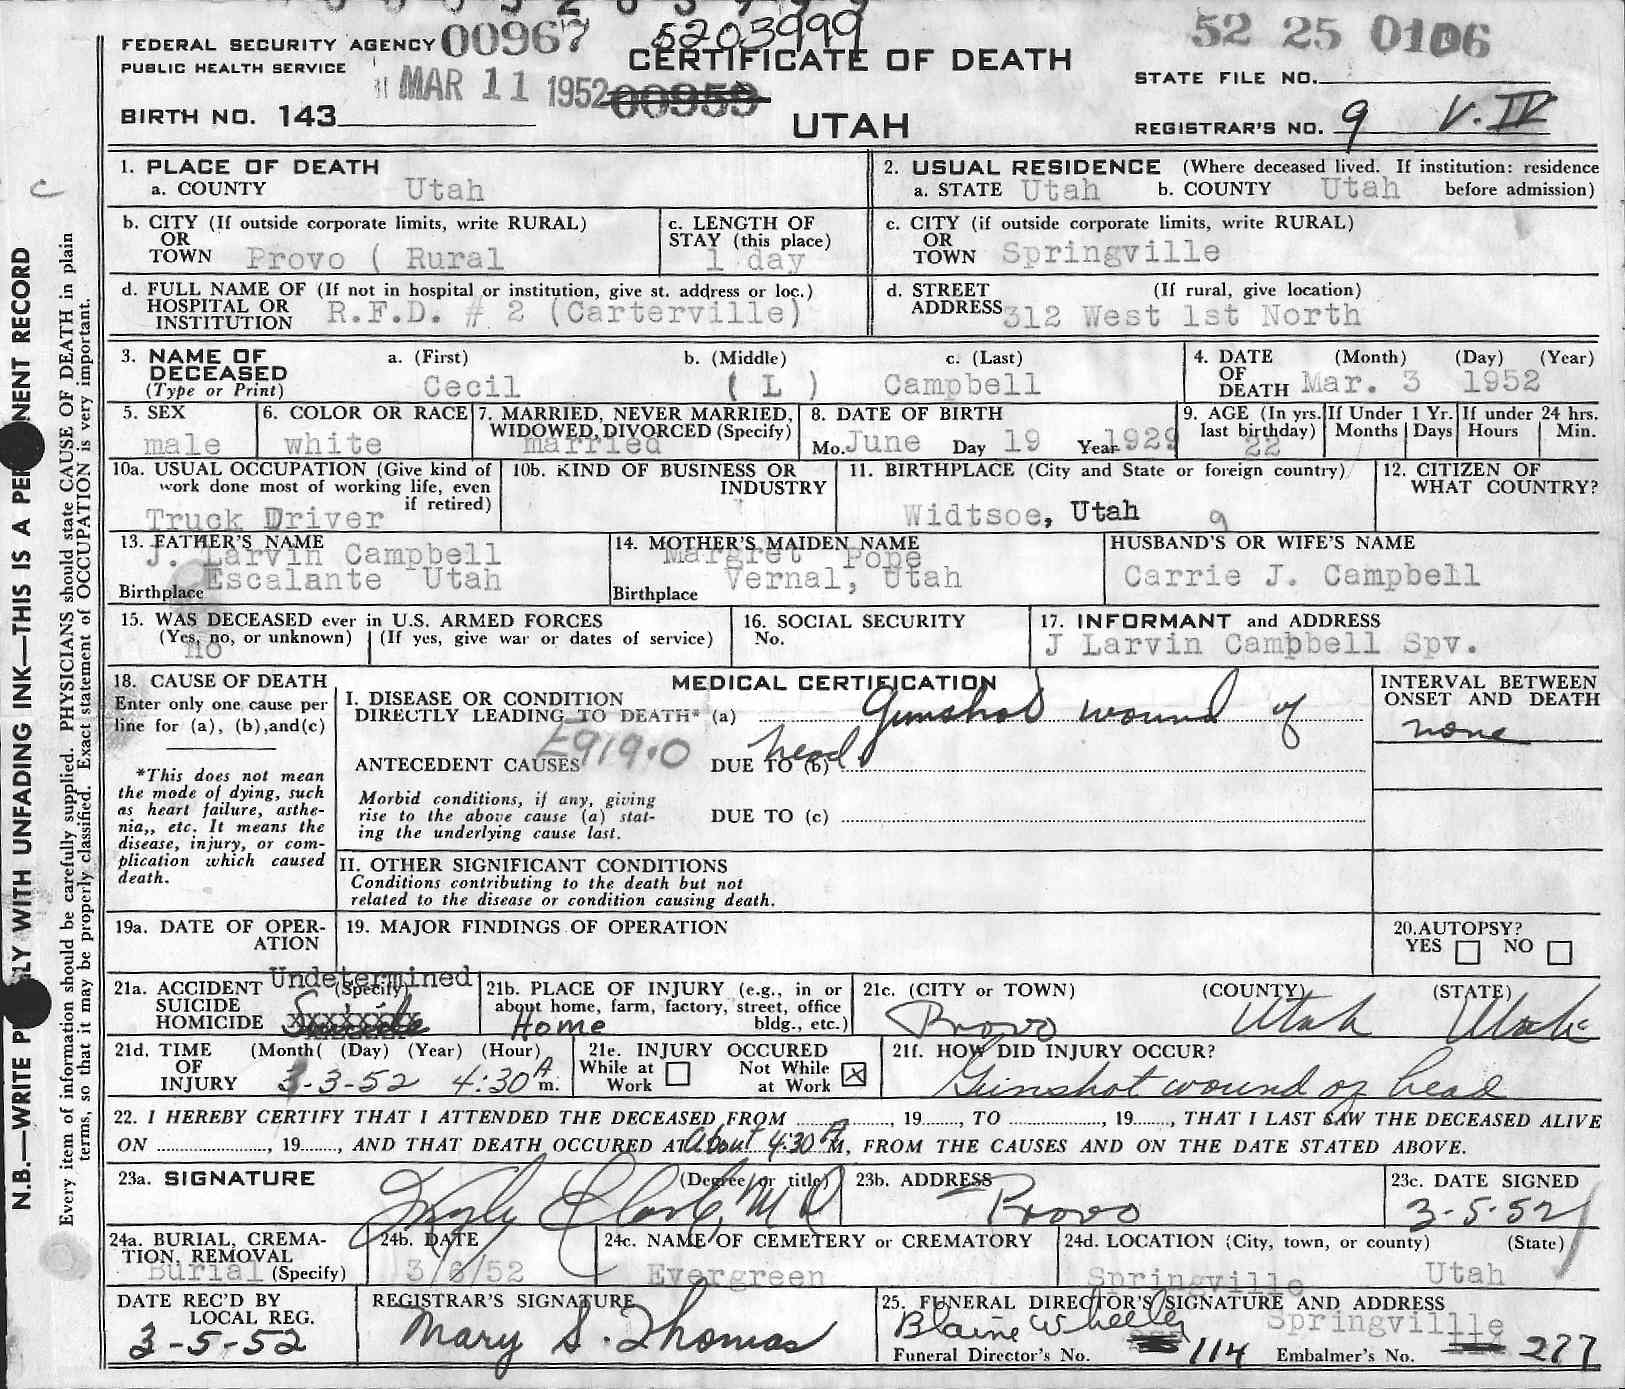 FEDERAL SECURITY AGENCY 00967 5203999 52 25 0106
PUBLIC HEALTH SERVICE
CERTIFICATE OF DEATH
MAR 11 1952 00959
STATE FILE NO.
BIRTH NO. 143
UTAH
REGISTRAR'S NO. 9 V. IV
1. PLACE OF DEATH
a. COUNTY Utah
2. USUAL RESIDENCE (Where deceased lived. If institution: residence
a. STATE Utah b. COUNTY Utah before admission)
b. CITY (If outside corporate limits, write RURAL)
OR
TOWN Provo ( Rural
c. LENGTH OF
STAY (this place)
1 day
c. CITY (if outside corporate limits, write RURAL)
OR
TOWN Springville
d. FULL NAME OF (If not in hospital or institution, give st. address or loc.)
HOSPITAL OR
INSTITUTION R.F.D. # 2 (Carterville)
d. STREET (If rural, give location)
ADDRESS 312 West 1st North
3. NAME OF
DECEASED
(Type or Print)
a. (First) b. (Middle) c. (Last)
Cecil ( L ) Campbell
4. DATE (Month) (Day) (Year)
OF
DEATH Mar. 3 1952
5. SEX
male
6. COLOR OR RACE
white
7. MARRIED, NEVER MARRIED,
WIDOWED, DIVORCED (Specify)
married
8. DATE OF BIRTH
Mo. June Day 19 Year 1929
9. AGE (In yrs.
last birthday)
22
If Under 1 Yr.
Months Days
If under 24 hrs.
Hours Min.
10a. USUAL OCCUPATION (Give kind of
work done most of working life, even
if retired)
Truck Driver
10b. KIND OF BUSINESS OR
INDUSTRY
11. BIRTHPLACE (City and State or foreign country)
Widtsoe, Utah 9
12. CITIZEN OF
WHAT COUNTRY?
13. FATHER'S NAME
J. Larvin Campbell
Escalante Utah
Birthplace
14. MOTHER'S MAIDEN NAME
Margret Pope
Vernal, Utah
Birthplace
HUSBAND'S OR WIFE'S NAME
Carrie J. Campbell
15. WAS DECEASED ever in U.S. ARMED FORCES
(Yes, no, or unknown) (If yes, give war or dates of service)
no
16. SOCIAL SECURITY
No.
17. INFORMANT and ADDRESS
J Larvin Campbell Spv.
18. CAUSE OF DEATH
Enter only one cause per
line for (a), (b),and(c)
*This does not mean
the mode of dying, such
as heart failure, asthe-
nia,, etc. It means the
disease, injury, or com-
plication which caused
death.
MEDICAL CERTIFICATION
I. DISEASE OR CONDITION
DIRECTLY LEADING TO DEATH* (a) Gunshot wound of
head
E919.0
ANTECEDENT CAUSES DUE TO (b)
Morbid conditions, if any, giving
rise to the above cause (a) stat-
ing the underlying cause last.
DUE TO (c)
INTERVAL BETWEEN
ONSET AND DEATH
none
II. OTHER SIGNIFICANT CONDITIONS
Conditions contributing to the death but not
related to the disease or condition causing death.
19a. DATE OF OPER-
ATION
19. MAJOR FINDINGS OF OPERATION
20. AUTOPSY?
YES NO
21a. ACCIDENT (Specify)
SUICIDE
HOMICIDE
Undetermined
21b. PLACE OF INJURY (e.g., in or
about home, farm, factory, street, office
bldg., etc.)
Home
21c. (CITY or TOWN) (COUNTY) (STATE)
Provo Utah Utah
21d. TIME (Month( (Day) (Year) (Hour)
OF
INJURY 3-3-52 4:30 A m.
21e. INJURY OCCURED
While at Not While
Work at Work
21f. HOW DID INJURY OCCUR?
Gunshot wound of head
22. I HEREBY CERTIFY THAT I ATTENDED THE DECEASED FROM , 19 , TO , 19 , THAT I LAST SAW THE DECEASED ALIVE
ON , 19 , AND THAT DEATH OCCURED AT About 4:30 A M, FROM THE CAUSES AND ON THE DATE STATED ABOVE.
23a. SIGNATURE (Degree or title)
Clark, MD
23b. ADDRESS
Provo
23c. DATE SIGNED
3-5-52
24a. BURIAL, CREMA-
TION, REMOVAL
Burial (Specify)
24b. DATE
3/6/52
24c. NAME OF CEMETERY or CREMATORY
Evergreen
24d. LOCATION (City, town, or county) (State)
Springville Utah
DATE REC'D BY
LOCAL REG.
3-5-52
REGISTRAR'S SIGNATURE
Mary S. Thomas
25. FUNERAL DIRECTOR'S SIGNATURE AND ADDRESS
Blaine Wheeler Springville
Funeral Director's No. 114 Embalmer's No. 277
N.B.—WRITE LY WITH UNFADING INK—THIS IS A PE NENT RECORD
Every item of information should be carefully supplied. PHYSICIANS should state CAUSE OF DEATH in plain
terms, so that it may be properly classified. Exact statement of OCCUPATION is very important.